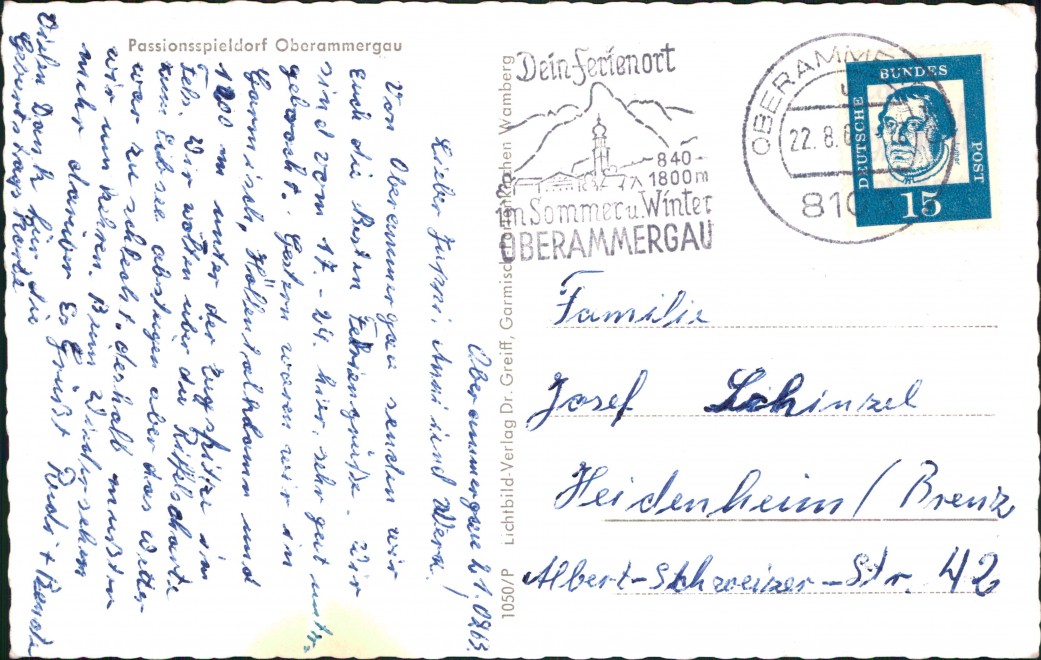 Passionsspieldorf Oberammergau
Oberammergau 21.0863.
Lieber Juppi, Anni und Vera!
Von Oberammergau senden wir
Euch die besten Feriengrüße. Wir
sind vom 17.-24. hier, sehr gut unter-
gebracht. Gestern waren wir in
Garmisch, Höllentalklamm und
1200 m unter der Zugspitze im
Fels. Wir wollten über die Riffelscharte
zum Eibsee absteigen aber das Wetter
war zu schlecht. deshalb mußten
wir um kehren. Beim Wiedersehen
mehr darüber Es grüßt Rudi + Renate
Vielen Dank für die
Geburtstags Karte
1050/P Lichtbild-Verlag Dr. Greiff, Garmisch-Partenkirchen Wamberg
Dein Ferienort
840-
1800m
im Sommer u. Winter
OBERAMMERGAU
OBERAMME
22.8.6
810
DEUTSCHE
BUNDES
POST
15
Familie
Josef Schinzel
Heidenheim / Brenz
Albert-Schweizer-Str. 42